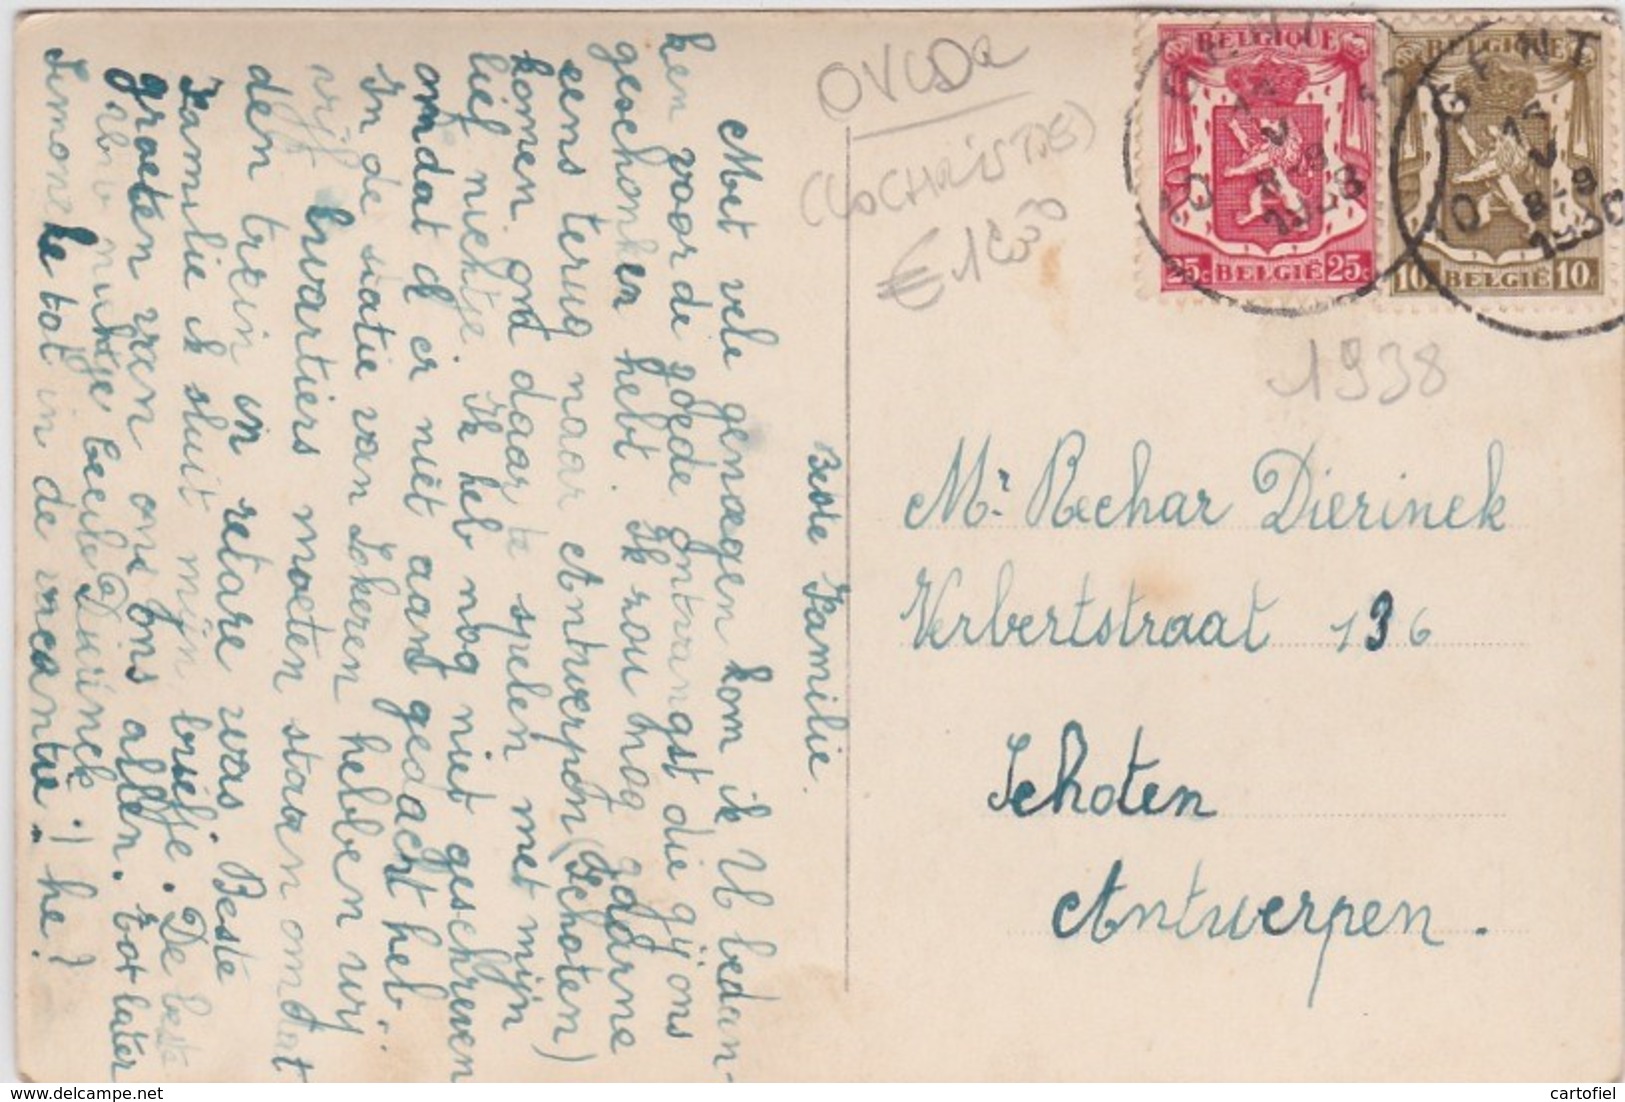 Beste Familie.
Met vele genoegen kom ik U bedan-
ken voor de goede ontvangst die gij ons
geschonken hebt. Ik zou nog gaarne
eens terug naar Antwerpen (Schoten)
komen om daar te spelen met mijn
lief nichtje. Ik heb nog niet geschreven
omdat ik er niet aan gedacht heb.
In de statie van Lokeren hebben wij
vijf kwartiers moeten staan omdat
den trein in retare was. Beste
Familie ik sluit mijn briefje. De beste
groeten van ons ons allen. Tot later
nichtje Dierinck
Simoneke tot in de vacantie. he?
OVLSDa
(LOCHRISTIE)
€
BELGIQUE
25c BELGIË 25c
BELGIQUE
10c BELGIË 10c
GENT
8-9
GENT
8-9
1938
Mr Rechar Dierinck
Verbertstraat 136
Schoten
Antwerpen.
cartofiel